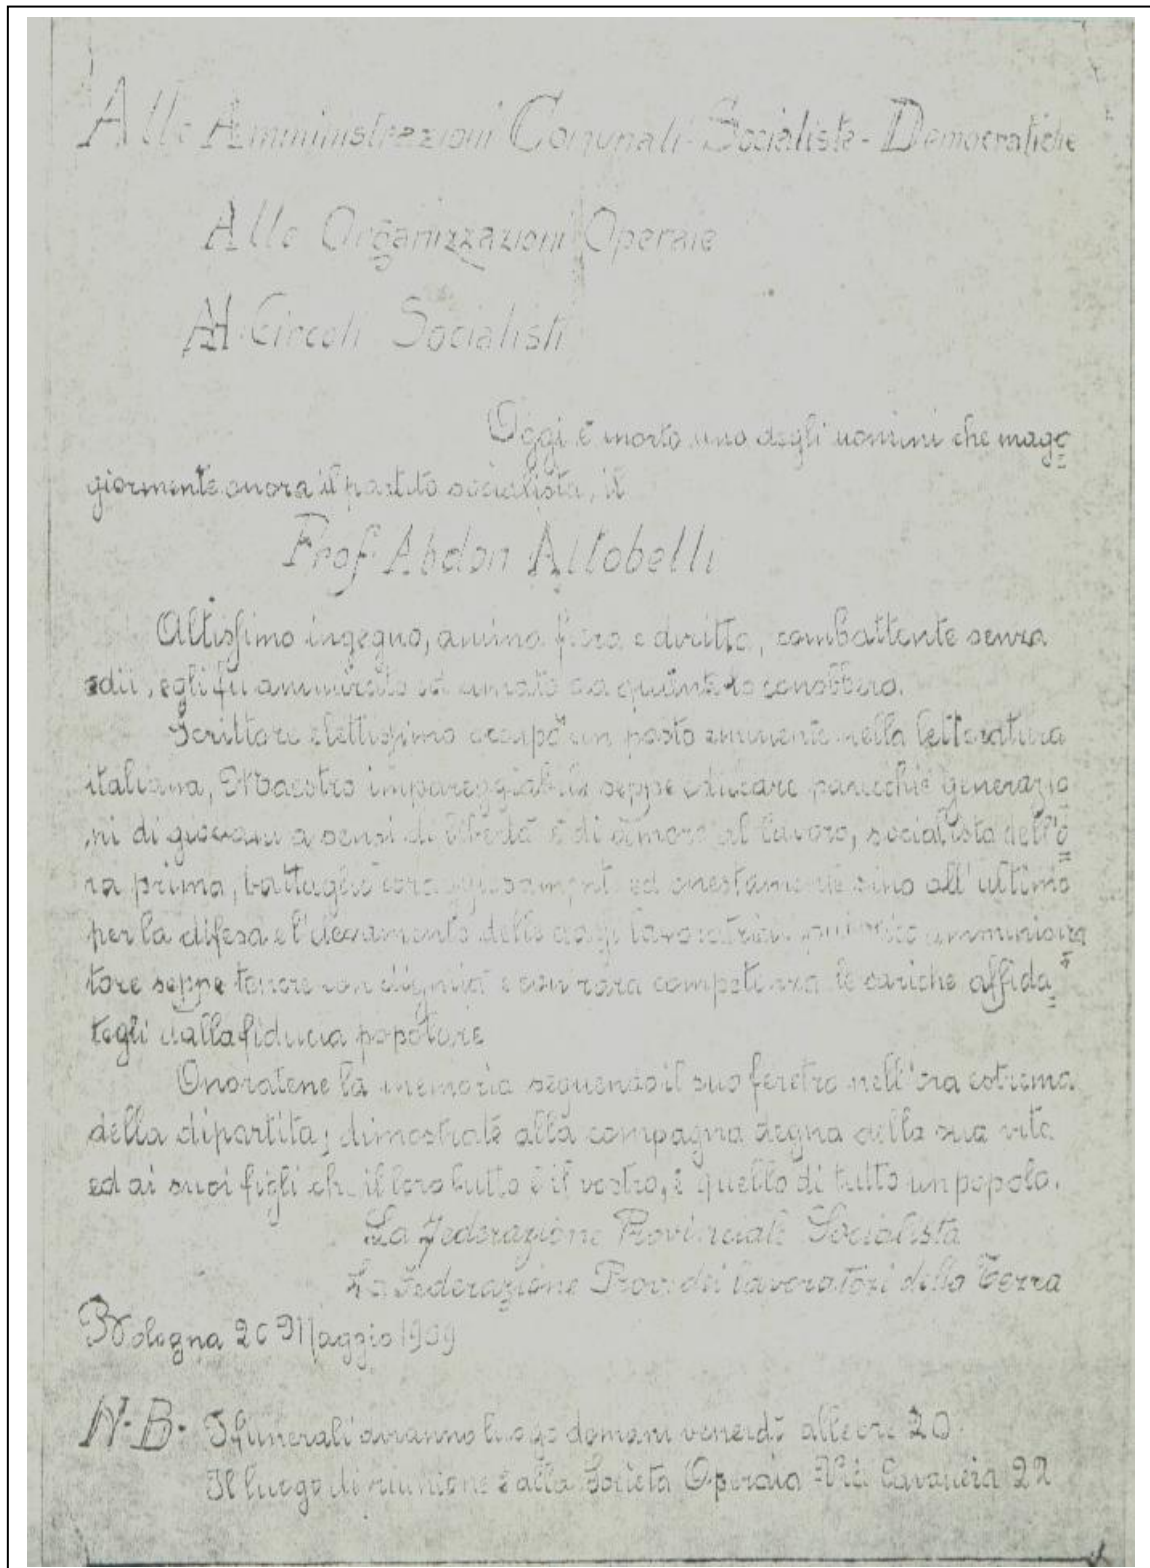 Alle Amministrazioni Comunali Socialiste - Democratiche
Alle Organizzazioni Operaie
Ai Circoli Socialisti
Oggi è morto uno degli uomini che mag=
giormente onora il partito socialista, il
Prof. Abdon Altobelli
Altissimo ingegno, anima fiera e diritta, combattente senza
odii, egli fu ammirato ed amato da quanti lo conobbero.
Scrittore elettissimo occupò un posto eminente nella letteratura
italiana, Maestro impareggiabile seppe educare parecchie generazio
ni di giovani a sensi di libertà e di amore al lavoro, socialista dell'o=
ra prima, battagliò coraggiosamente ed onestamente sino all'ultimo
per la difesa e l' delle lavoratrici, pubblico amministra
tore seppe tenere con dignità e con rara competenza le cariche affida=
tegli dalla fiducia popolare
Onoratene la memoria seguendo il suo feretro nell'ora estrema
della dipartita; dimostrate alla compagna degna della sua vita
ed ai suoi figli che il loro lutto è il vostro, è quello di tutto un popolo.
La Federazione Provinciale Socialista
La Federazione Prov. dei lavoratori della Terra
Bologna 20 Maggio 1909
N.B. I funerali avranno luogo domani venerdì alle ore 20
Il luogo di riunione è alla Società Operaia Via 22